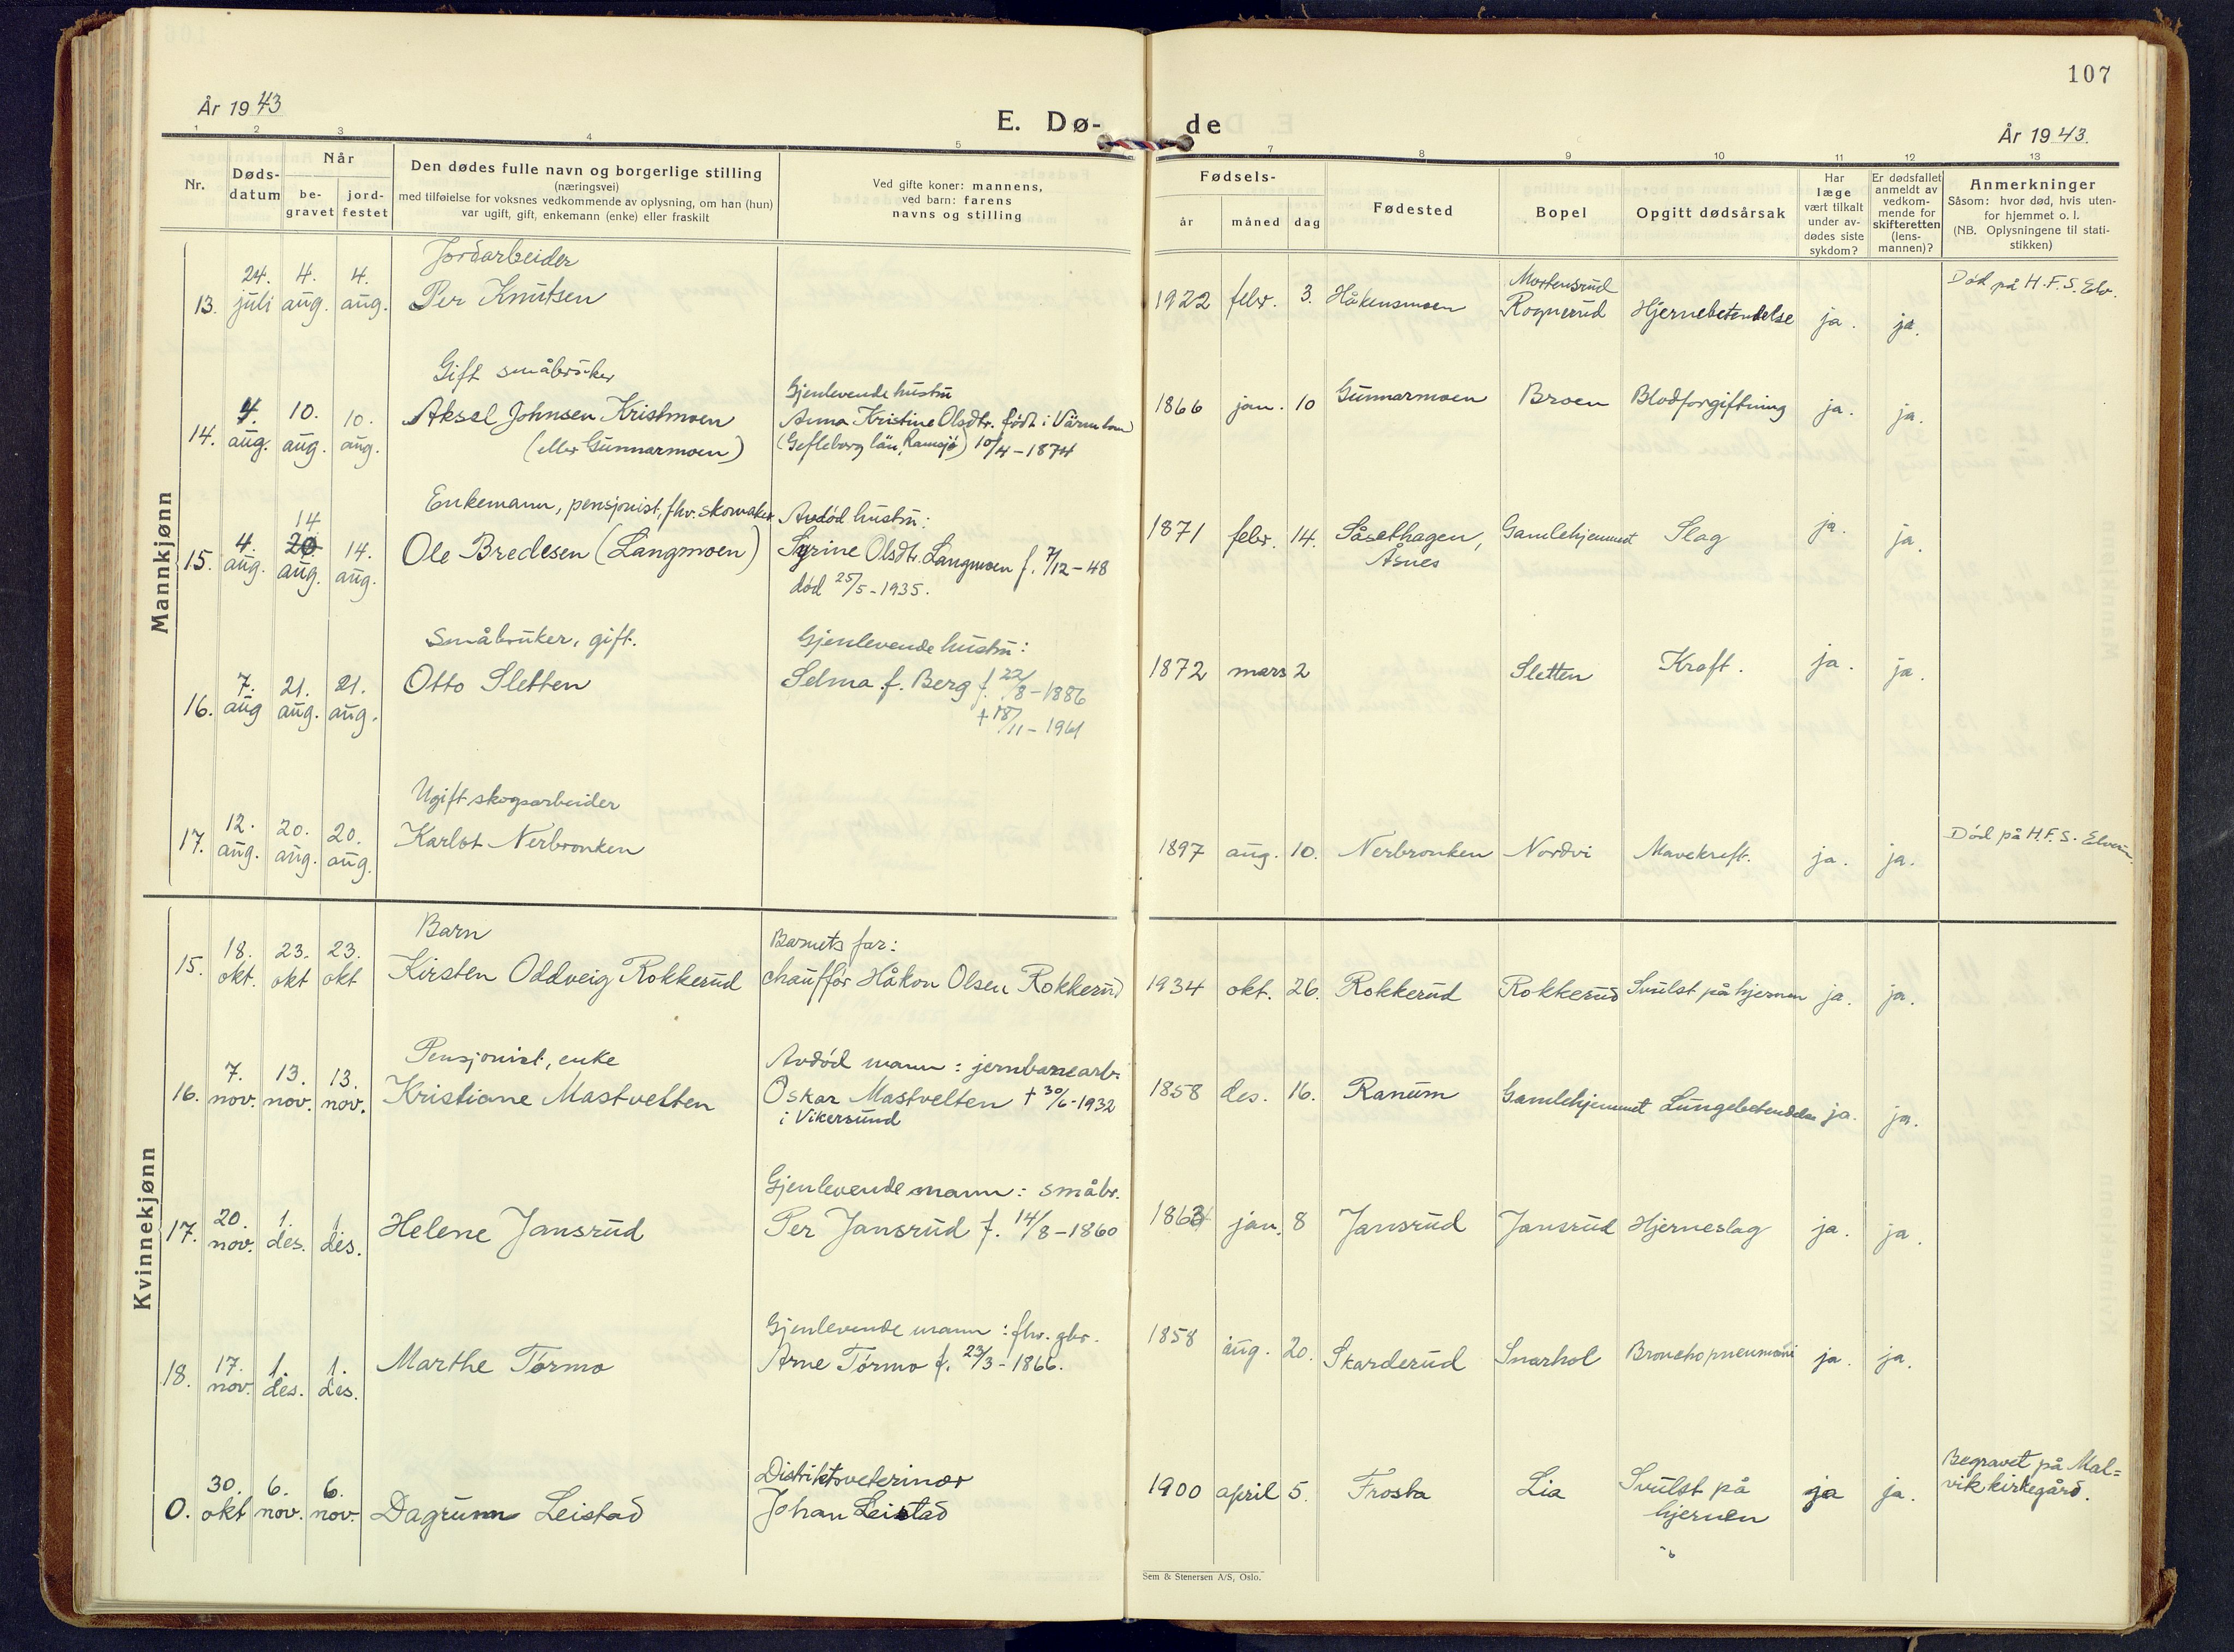 107
År 1943
E. Dø-
de
År 1943.
1 2 3 4 5 7 8 9 10 11 12 13
Nr.
Døds-
datum
Når
be-
gravet
jord-
festet
Den dødes fulle navn og borgerlige stilling
(næringsvei)
med tilføielse for voksnes vedkommende av oplysning, om han (hun)
var ugift, gift, enkemann (enke) eller fraskilt
Ved gifte koner: mannens,
ved barn: farens
navns og stilling
Fødsels-
år måned dag
Fødested
Bopel
Opgitt dødsårsak
Har
læge
vært tilkalt
under av-
dødes siste
sykdom?
Er dødsfallet
anmeldt av
vedkom-
mende for
skifteretten
(lens-
mannen)?
Anmerkninger
Såsom: hvor død, hvis uten-
for hjemmet o. l.
(NB. Oplysningene til stati-
stikken)
Mannkjønn
Jordarbeider
13. 24. juli 4. aug. 4. aug. Per Knutsen
1922 febr. 3. Håkensmoen Mortensrud
Rognerud Hjernebetendelse ja. ja. Död på H.F.S. Elv.
Gift småbruker
14. 4. aug. 10. aug. 10. aug. Aksel Johnsen Kristmoen
(eller Gunnarmoen)
Gjenlevende hustru
Anna Kristine Olsdtr. född i Värmlan
(Gefleborg län, Ramsjö) 10/4-1874
1866 jan. 10 Gunnarmoen Broen Blodforgiftning ja. ja.
Enkemann, pensjonist, fhv. skomaker
15. 4. aug. 14 20. aug. 14. aug. Ole Bredesen (Langmoen)
Avdöd hustru:
Syrine Olsdtr. Langmoen f. 7/12-48
död 25/5-1935.
1871 febr. 14. Såsethagen,
Åsnes Gamlehjemmet Slag ja. ja.
Småbruker, gift.
16. 7. aug 21. aug. 21. aug. Otto Sletten
Gjenlevende hustru:
Selma f. Berg f. 22/8-1886
+ 18/11-1961
1872 mars 2 Sletten Kraft. ja. ja.
Ugift skogsarbeider
17. 12. aug. 20. aug. 20. aug. Karlot Nerbronken
1897 aug. 10. Nerbronken Nordvi Mavekreft. ja. ja. Död på H.F.S. Elverum.
Kvinnekjønn
Barn
15. 18. okt. 23. okt 23. okt Kirsten Oddveig Rokkerud
Barnets far:
chauffør Håkon Olsen Rokkerud
1934 okt. 26. Rokkerud Rokkerud Svulst på hjernen ja. ja.
Pensjonist, enke
16. 7. nov. 13. nov. 13. nov. Kristiane Mastvelten
Avdöd mann: jernbanearb.
Oskar Mastvelten + 30/6-1932
i Vikersund
1858 des. 16. Ranum Gamlehjemmet Lungebetendelse ja. ja.
17. 20. nov. 1. des. 1. des. Helene Jansrud
Gjenlevende mann: småbr.
Per Jansrud f. 14/8-1860
jan. 8 Jansrud Jansrud Hjerneslag ja. ja.
18. 17. nov. 1. des. 1. des. Marthe Törmo
Gjenlevende mann: fhv. gbr.
Arne Törmo f. 23/3-1866.
1858 aug. 20. Skarderud Snarhol Bronchopneumoni ja. ja.
0. 30. okt 6. nov. 6. nov. Dagrunn Leistad
Distriktsveterinær
Johan Leistad
1900 april 5. Frosta Lia Svulst på
hjernen ja ja. Begravet på Mal=
vik kirkegård.
Sem & Stenersen A/S, Oslo.